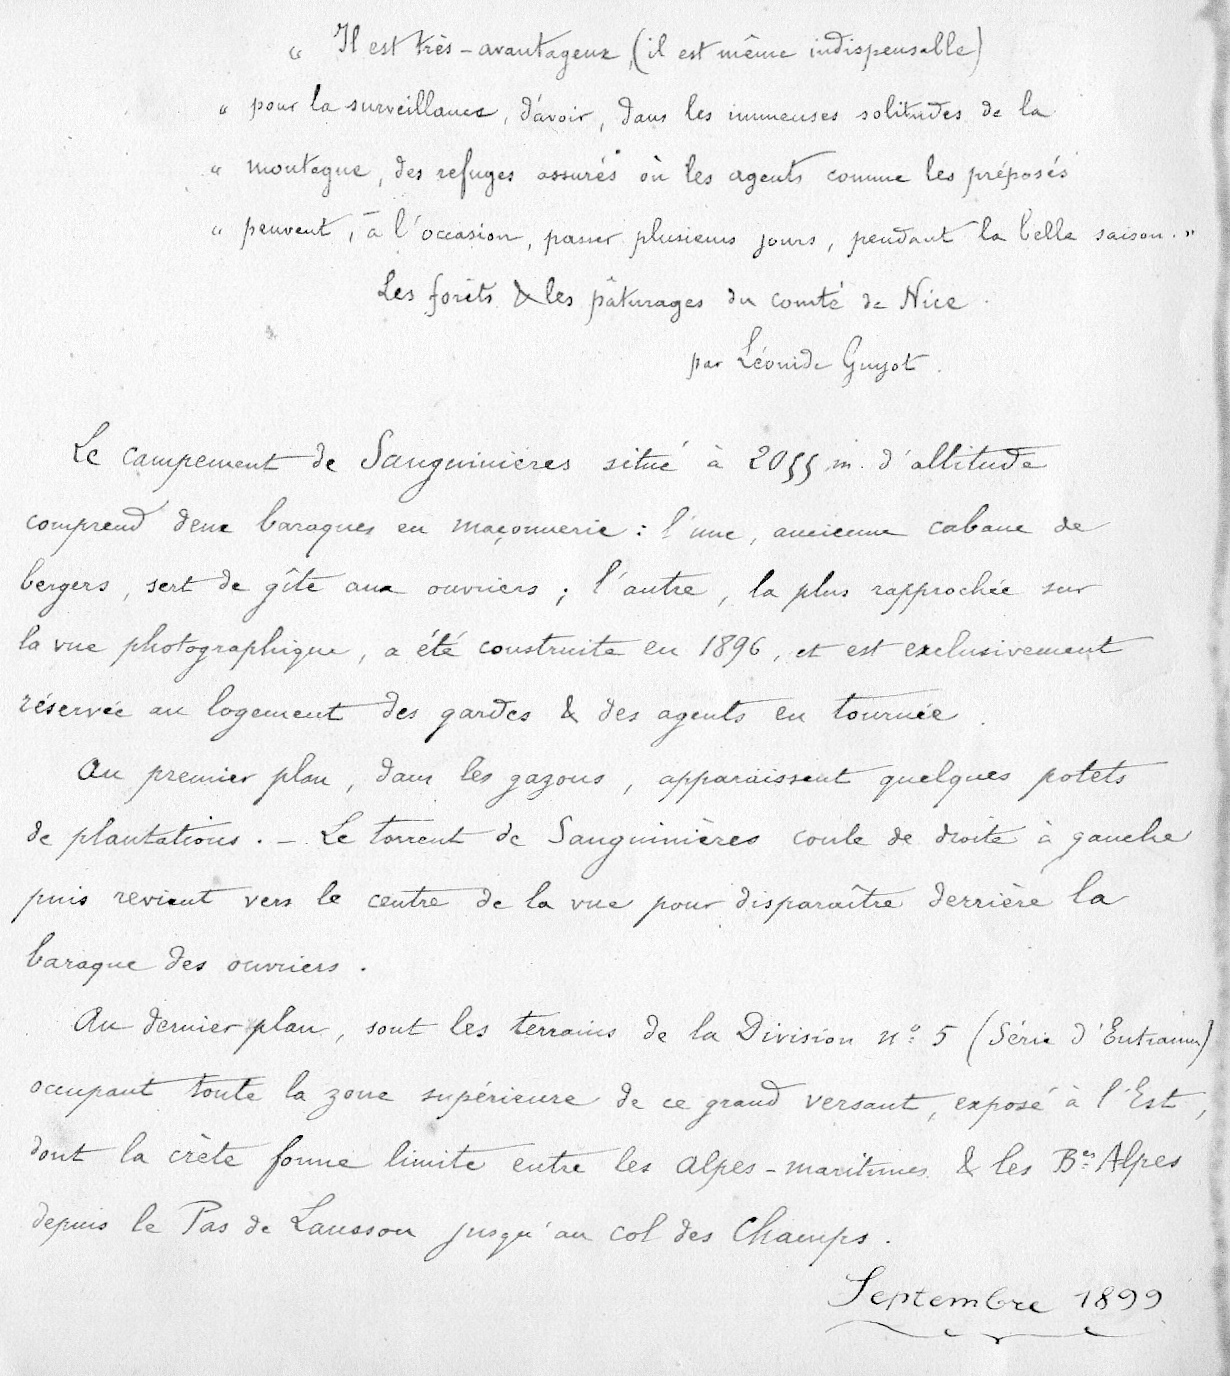 " Il est très-avantageux, (il est même indispensable)
" pour la surveillance, d'avoir, dans les immenses solitudes de la
" montagne, des refuges assurés où les agents comme les préposés
" peuvent, à l'occasion, passer plusieurs jours, pendant la belle saison. "
Les forêts & les pâturages du comté de Nice.
par Léonide Guyot.
Le campement de Sanguinières situé à 2055 m. d'altitude
comprend deux baraques en maçonnerie : l'une, ancienne cabane de
bergers, sert de gîte aux ouvriers ; l'autre, la plus rapprochée sur
la vue photographique, a été construite en 1896, et est exclusivement
réservée au logement des gardes & des agents en tournée.
Au premier plan, dans les gazons, apparaissent quelques potets
de plantations. - Le torrent de Sanguinières coule de droite à gauche
puis revient vers le centre de la vue pour disparaître derrière la
baraque des ouvriers.
Au dernier plan, sont les terrains de la Division n° 5 (Série d'Entraunes)
occupant toute la zone supérieure de ce grand versant, exposé à l'Est,
dont la crète forme limite entre les Alpes-maritimes & les Bes Alpes
depuis le Pas de Lausson jusqu'au col des Champs.
Septembre 1899